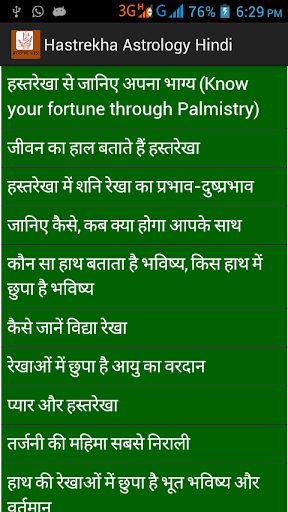 3G H G 76% 6:29 PM
Hastrekha Astrology Hindi
हस्तरेखा से जानिए अपना भाग्य (Know
your fortune through Palmistry)
जीवन का हाल बताते हैं हस्तरेखा
हस्तरेखा में शनि रेखा का प्रभाव-दुष्प्रभाव
जानिए कैसे, कब क्या होगा आपके साथ
कौन सा हाथ बताता है भविष्य, किस हाथ में
छुपा है भविष्य
कैसे जानें विद्या रेखा
रेखाओं में छुपा है आयु का वरदान
प्यार और हस्तरेखा
तर्जनी की महिमा सबसे निराली
हाथ की रेखाओं में छुपा है भूत भविष्य और
वर्तमान